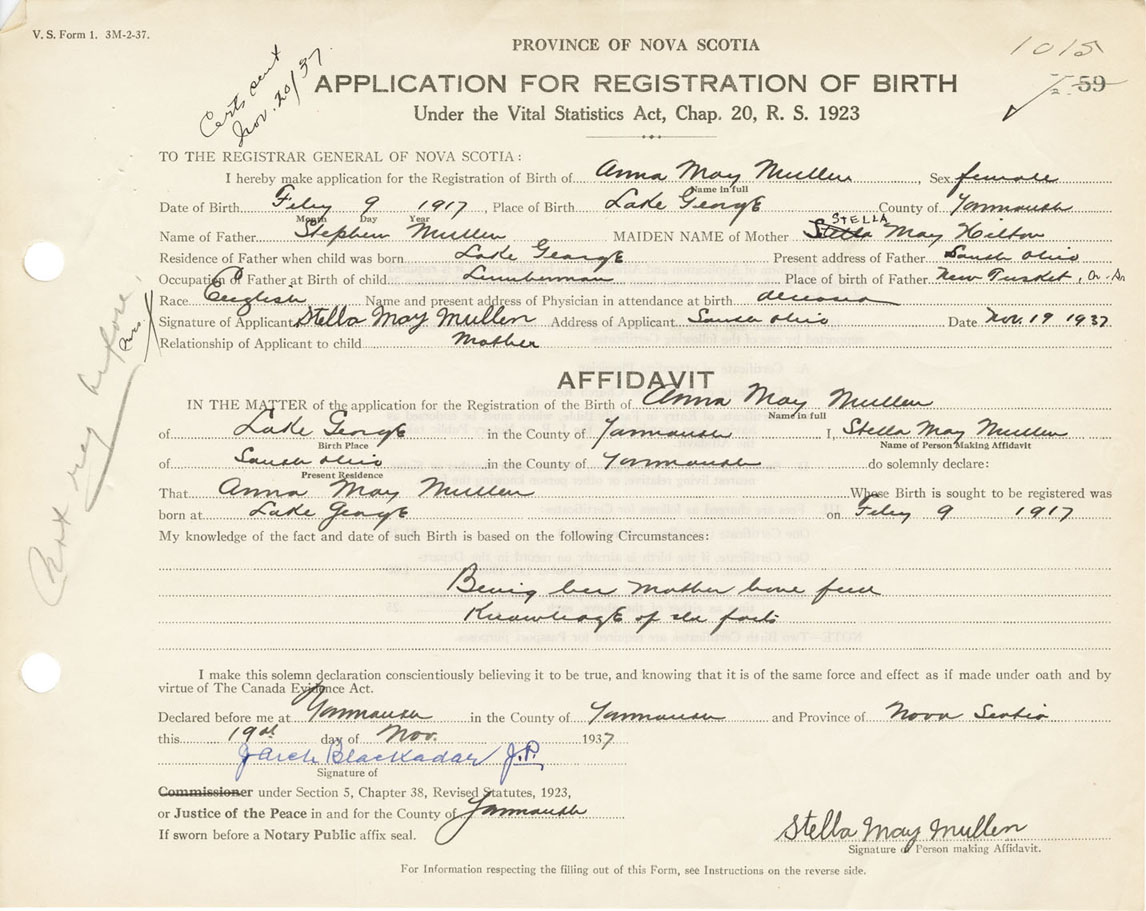 V. S. Form 1. 3M-2-37.
PROVINCE OF NOVA SCOTIA
1015
59
Certs sent
Nov. 20/37
APPLICATION FOR REGISTRATION OF BIRTH
Under the Vital Statistics Act, Chap. 20, R. S. 1923
TO THE REGISTRAR GENERAL OF NOVA SCOTIA:
I hereby make application for the Registration of Birth of Anna May Mullen, Sex female
Name in full
Date of Birth Feby 9 1917, Place of Birth Lake George County of Yarmouth
Month Day Year
STELLA
Name of Father Stephen Mullen MAIDEN NAME of Mother Stella May Hilton
Residence of Father when child was born Lake George Present address of Father South Ohio
Occupation of Father at Birth of child Lumberman Place of birth of Father New Tusket,
Race English Name and present address of Physician in attendance at birth deceased
Signature of Applicant Stella May Mullen Address of Applicant South Ohio Date Nov. 19 1937
Relationship of Applicant to child Mother
Not reg before
AFFIDAVIT
IN THE MATTER of the application for the Registration of the Birth of Anna May Mullen
Name in full
of Lake George in the County of Yarmouth I, Stella May Mullen
Birth Place Name of Person Making Affidavit
of South Ohio in the County of Yarmouth do solemnly declare:
Present Residence
That Anna May Mullen Whose Birth is sought to be registered was
born at Lake George on Feby 9 1917
My knowledge of the fact and date of such Birth is based on the following Circumstances:
Being her Mother have full
Knowledge of the facts
I make this solemn declaration conscientiously believing it to be true, and knowing that it is of the same force and effect as if made under oath and by
virtue of The Canada Evidence Act.
Declared before me at Yarmouth in the County of Yarmouth and Province of Nova Scotia
this 19th day of Nov. 1937
J Arch Blackadar J.P.
Signature of
Commissioner under Section 5, Chapter 38, Revised Statutes, 1923,
or Justice of the Peace in and for the County of Yarmouth
If sworn before a Notary Public affix seal.
Stella May Mullen
Signature of Person making Affidavit.
For Information respecting the filling out of this Form, see Instructions on the reverse side.